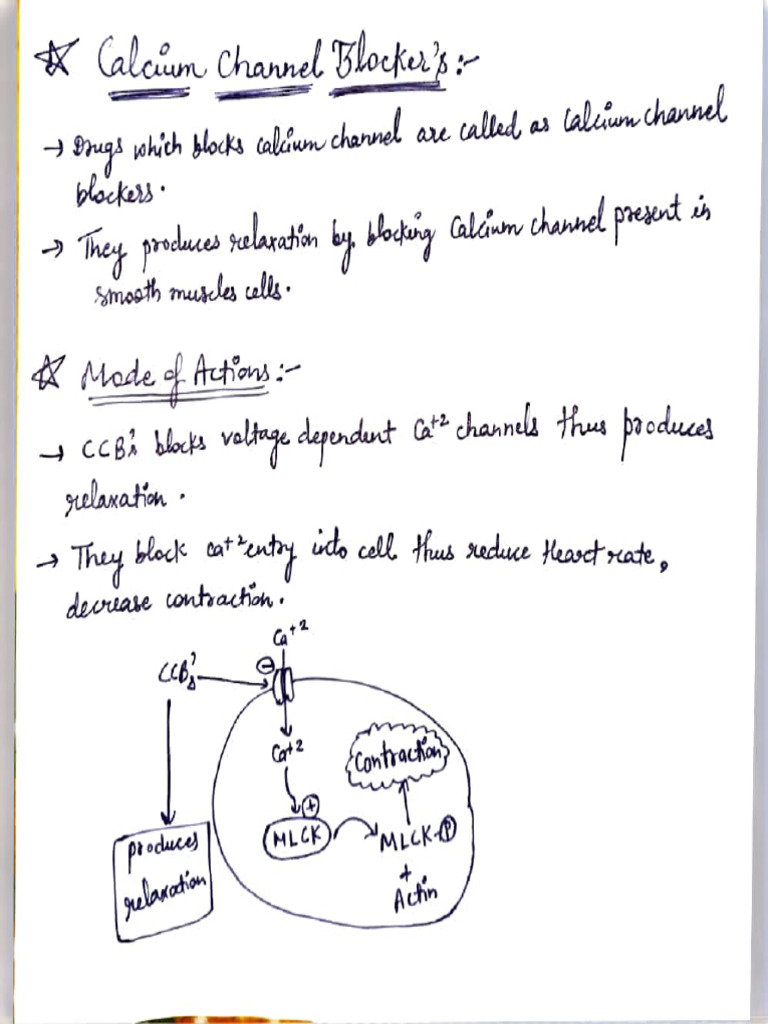 ☆ Calcium Channel Blocker's :-
→ Drugs which blocks calcium channel are called as calcium channel
blockers.
→ They produces relaxation by blocking Calcium channel present in
smooth muscles cells.
☆ Mode of Actions :-
→ CCB's blocks voltage dependent Ca+2 channels thus produces
relaxation.
→ They block ca+2 entry into cell thus reduce Heart rate,
decrease contraction.
Ca+2
CCB's
⊖
Ca+2
Contraction
⊕
MLCK
MLCK-Ⓟ
+
Actin
produces
relaxation